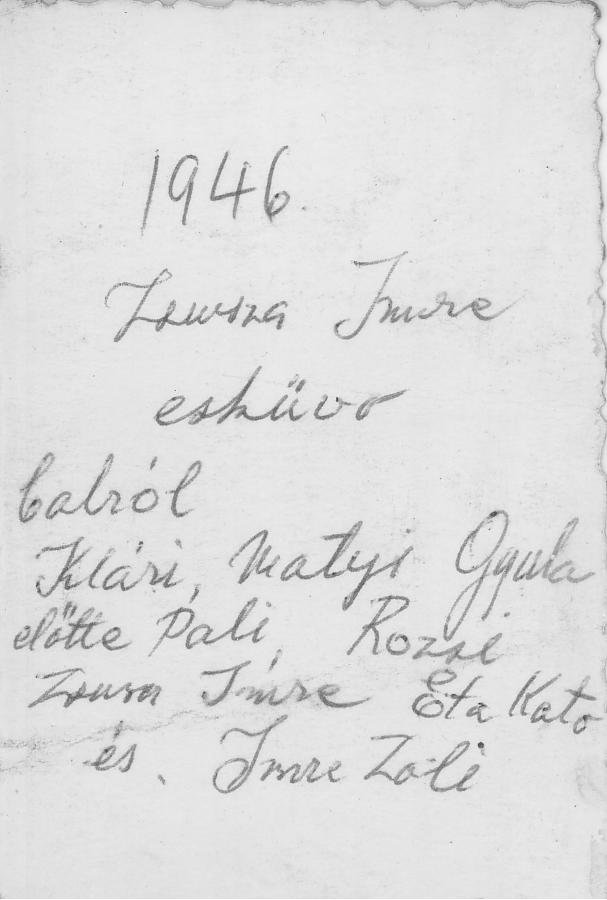 1946.
Zsuzsa Imre
esküvo
balról
Klári, Matyi Gyula
előtte Pali, Rozsi
Zsuzsa Imre Eta Kato
és, Imre Zoli